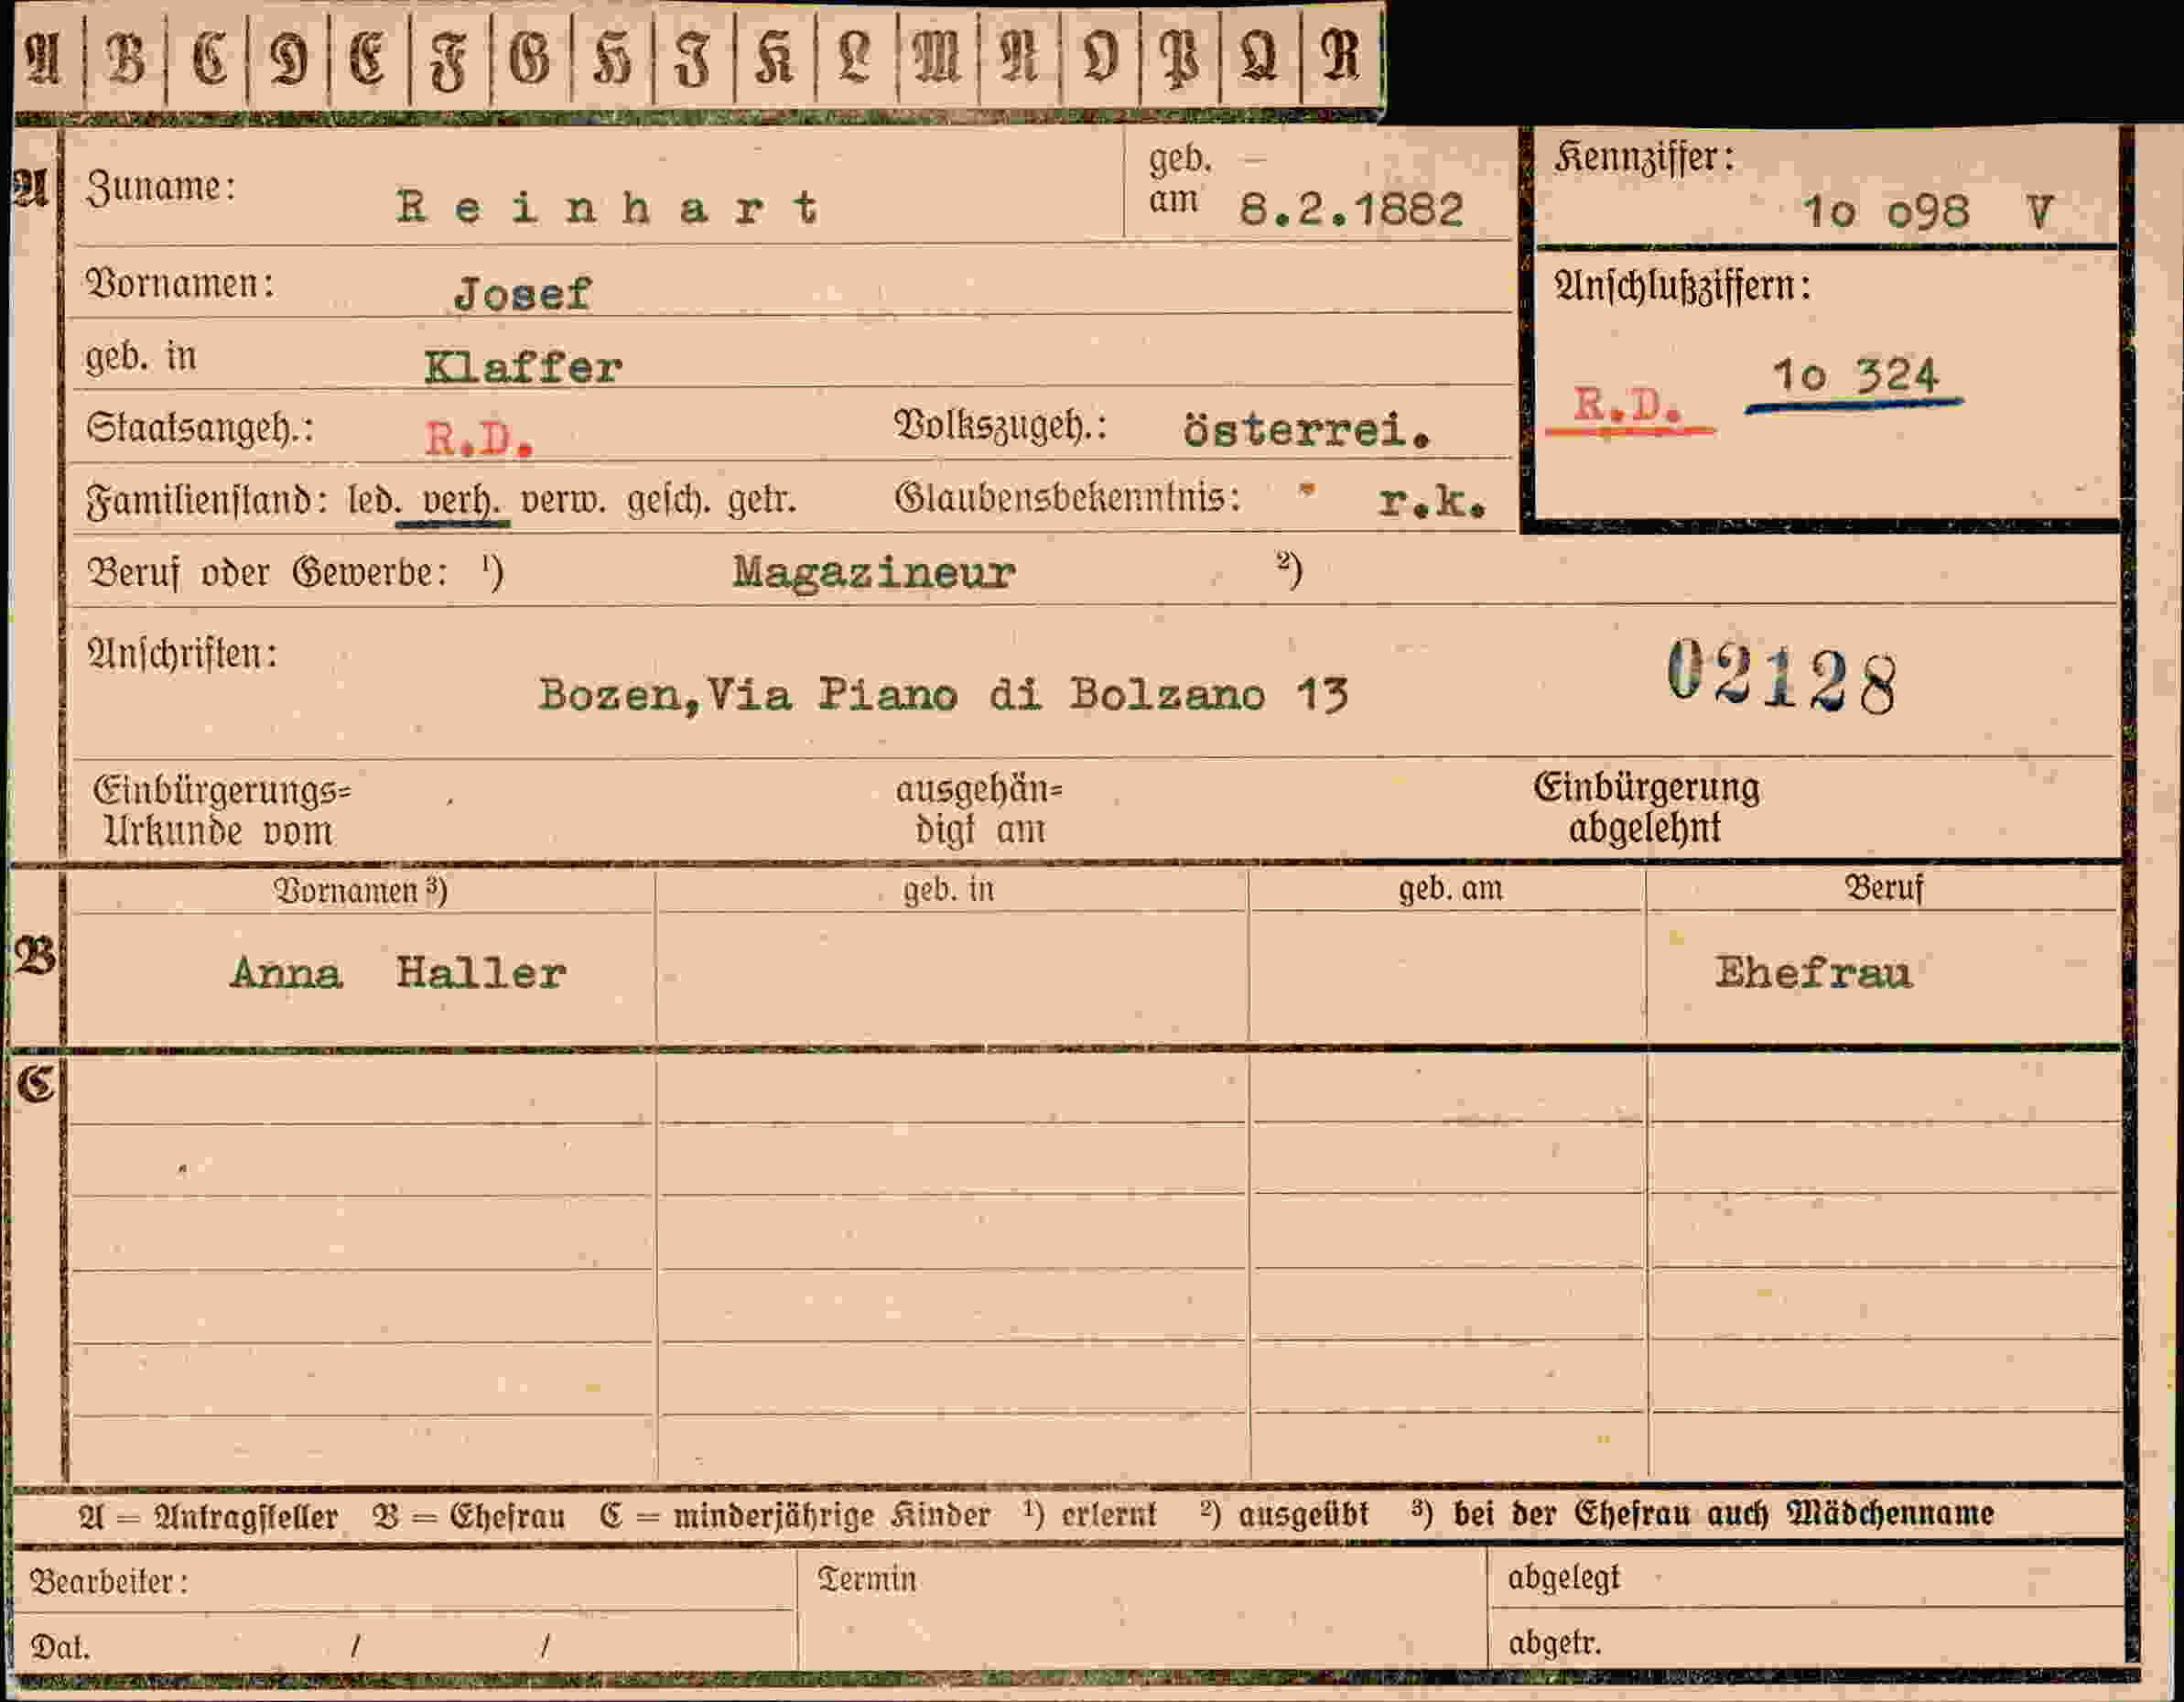 A B C D E F G H J K L M N O P Q R
A Zuname: Reinhart geb. am 8.2.1882 Kennziffer: 1o o98 V
Vornamen: Josef Anschlußziffern:
geb. in Klaffer R.D. 1o 324
Staatsangeh.: R.D. Volkszugeh.: österrei.
Familienstand: led. verh. verw. gesch. getr. Glaubensbekenntnis: r.k.
Beruf oder Gewerbe: ¹) Magazineur ²)
Anschriften: 02128
Bozen,Via Piano di Bolzano 13
Einbürgerungs= ausgehän= Einbürgerung
Urkunde vom digt am abgelehnt
Vornamen ³) geb. in geb. am Beruf
B Anna Haller Ehefrau
C
A = Antragsteller B = Ehefrau C = minderjährige Kinder ¹) erlernt ²) ausgeübt ³) bei der Ehefrau auch Mädchenname
Bearbeiter: Termin abgelegt
Dat. / / abgetr.